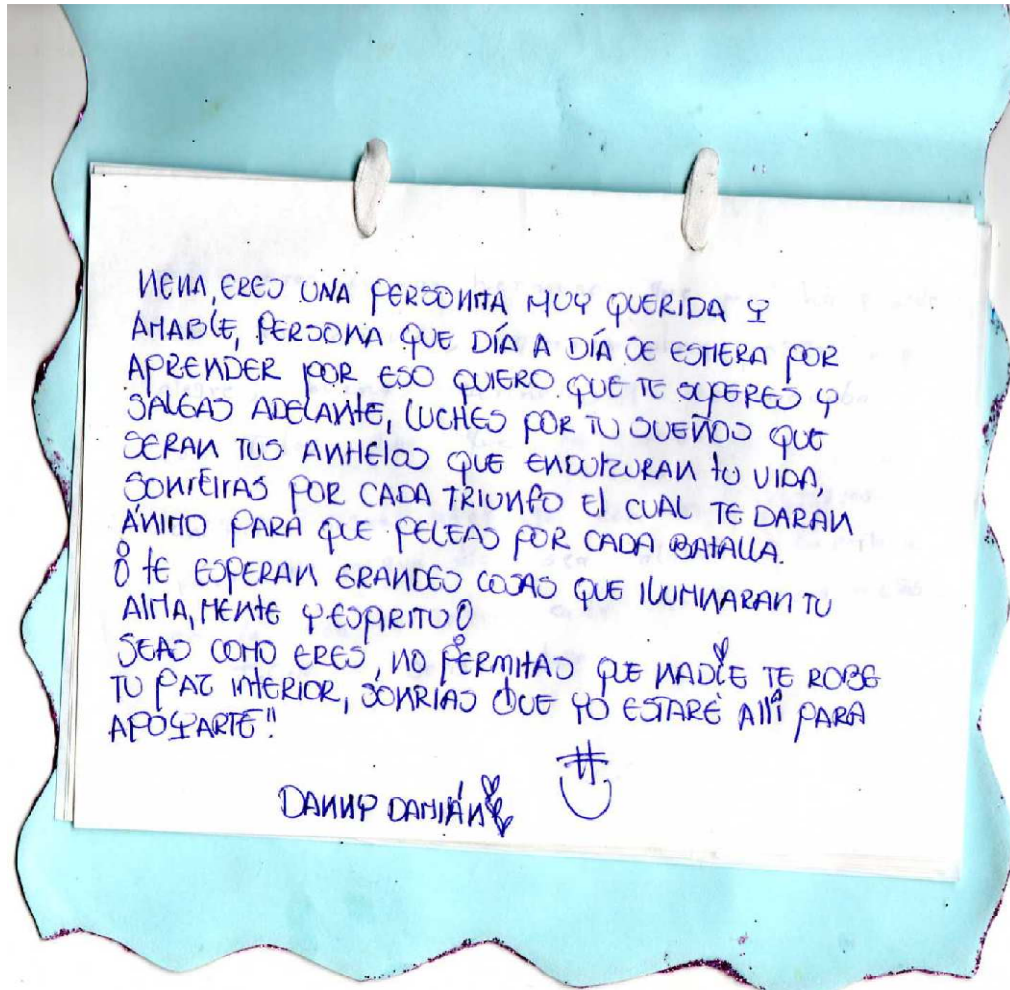 NENA, ERES UNA PERSONITA MUY QUERIDA Y
AMABLE, PERSONA QUE DÍA A DÍA SE ESMERA POR
APRENDER POR ESO QUIERO QUE TE SUPERES Y
SALGAS ADELANTE, LUCHES POR TU SUEÑOS QUE
SERAN TUS ANHELOS QUE ENDULZURAN tU VIDA,
SONREIRAS POR CADA TRIUNFO El CUAL TE DARAN
ÁNIMO PARA QUE PELEAS POR CADA BATALLA.
¡ tE ESPERAN GRANDES COSAS QUE ILUMINARAN TU
AlMA, MENtE Y ESPIRITU!
SEAS COMO ERES, NO PERMITAS QUE NADIE TE ROBE
TU PAZ INTERIOR, SONRIAS QUE YO ESTARÉ Allí PARA
APOYARTE"
DANNY DAMIÁN